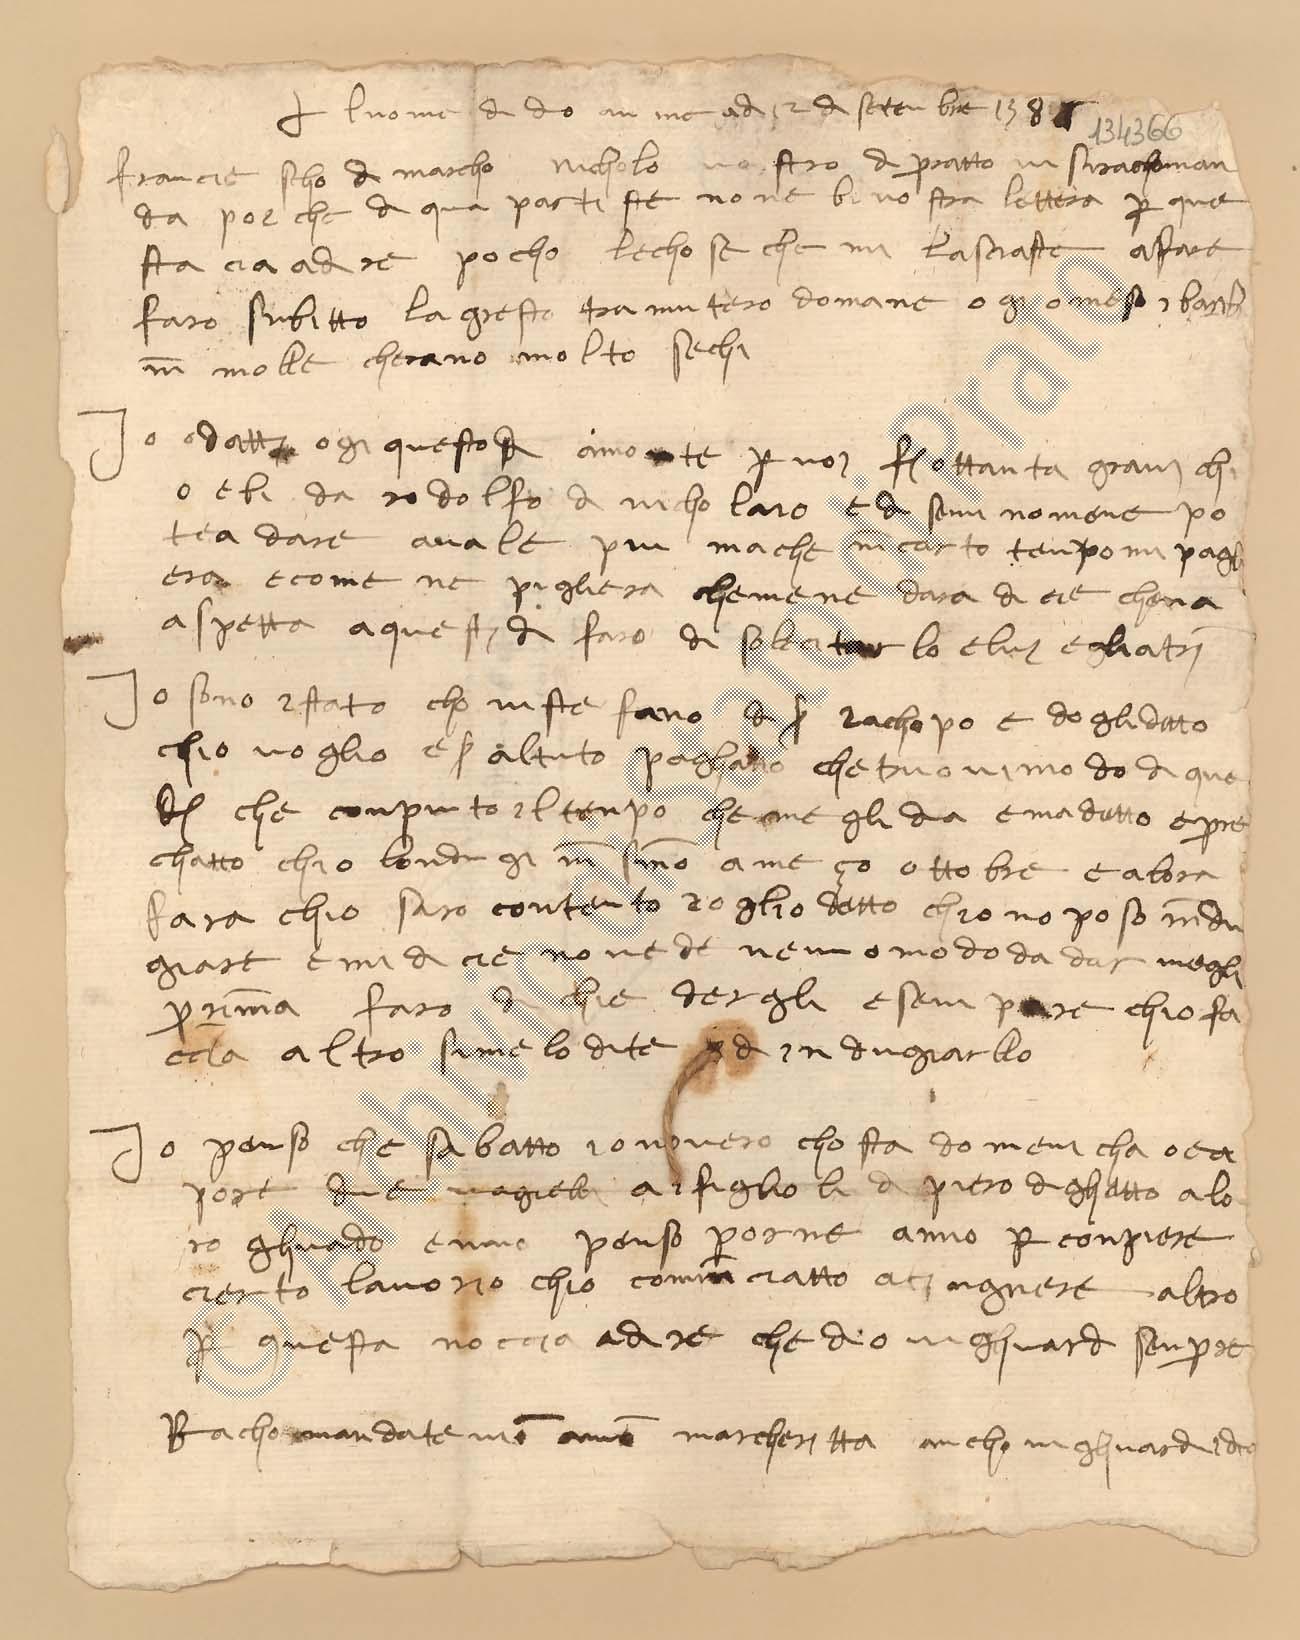 + l nome di dio amme adi 12 di setenbre 138
134366
francie scho di marcho nicholo vostro di pratto vi sirachoman
da poi che di qua partiste none bi vostra lettera p que
sta cia adire pocho le chose che mi lasciaste afare
faro subitto lagresto tramutero domane ogi o meso i barili
in molle cherano molto sechi
Io o datto ogi questo di amonte p voi fi ottanta grani chi
o ebi da rodolfo di nicholaio e di senu nomene po
tea dare avale piu mache in certo tenpo mi pagh
era e come ne pigliera chemene dara di cie chena
aspetta a questi di faro di solecitar lo e lui e gliatri
Io sono istato cho niste fano di s iachopo e dogli detto
chio voglio es al tuto paghatto che truovi modo di que
di che conpiuto il tenpo che me gli dia e ma detto e pre
chatto chio londugi in sino a me ço ottobre e alora
fara chio saro contento io gli o detto chio no poso indu
giare e mi dicie no vede nenuo modo da dar megli
prima faro di chie dergli e senpare chio fa
ccia altro si me lo dite od indugiarllo
Io penso che sabatto io novero chosta domenicha o ea
pore due vagielli a i figlioli di piero di ghetto a lo
ro ghuado e uno penso porne a mio p conpiere
cierto lavorio chio cominciatto a tignere altro
p questa no ccia adire che dio vi ghuardi senpre
Rachomandatemi a mona marcheritta ancho vi ghuardi idio